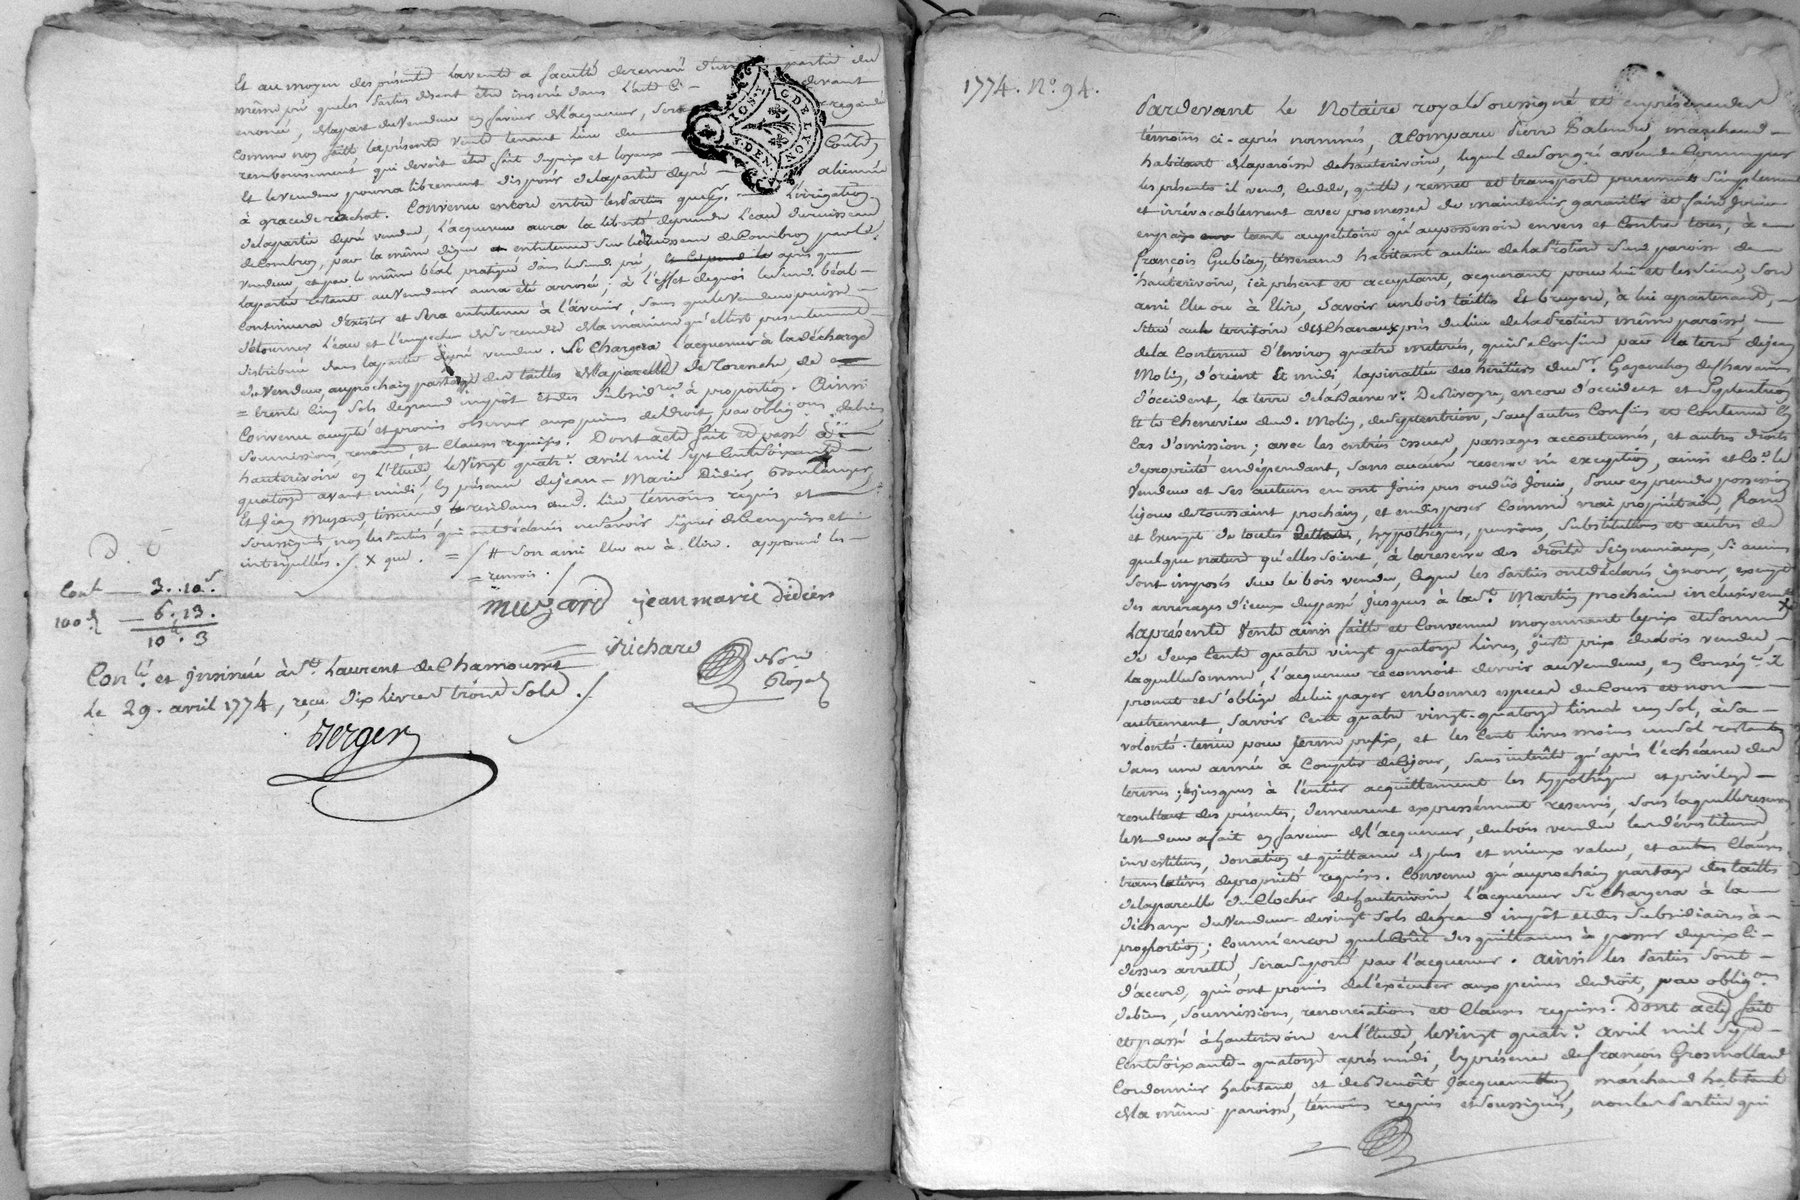 Et au moyen des présentes la vente a faculté de remeré d'une partie du
même pré que les parties disent être inseré dans l'acte ci-devant
enoncé, de la part du vendeur en faveur de l'acquereur, sera regardé
comme non fait la présente vente tenant lieu du
remboursement qui devoit être fait du prix et loyaux Coûts,
Et le vendeur pourra librement disposer de la partie de pré alienée
à grace de rachat. Convenu encore entre les parties que l'irrigation
de la partie de pré vendue, l'acquereur aura la liberté de prendre l'eau du ruisseau
de Combroy, par la même digue entretenue sur le ruisseau de Combroy par le
vendeur, et par le même béal pratiqué dans le susd. pré, après que
la partie restant au vendeur aura été arrosée; à l'effet de quoi le susd. béal
continuera d'exister et sera entretenu à l'avenir, sans que le vendeur puisse
détourner l'eau et l'empecher de se rendre de la maniere qu'elle est presentement
distribuée dans la partie de pré vendue. Se Chargera l'acquereur à la décharge
du vendeur au prochain partage des tailles de la parcelle de Torenche, de
= trente cinq sols de grand impôt et des subsidres à proportion. Ainsi
Convenu accepté et promis observer aux peines de droit, par oblig.ons de biens
soumissions, renon.ons et Clauses requises. Dont acte fait et passé à
hauterivoire en l'Etude le vingt quatre avril mil sept cent soixante
quatorze avant midi, en présence de jean-Marie Didier, boulanger,
Et Jean Muzard tisserand residans aud. lieu témoins requis et
soussignés non les parties qui ont déclaré ne savoir signer de ce enquises et
interpellées. / x que. = / # son ami elu ou à elire. approuvé les
= renvois.
muzard jean marie didier
Richard
Nore
Royal
Cont. 3..10s
100e 6..13.
10tt. 3
Con.lé et insinué à St. Laurent de Chamousset
le 29. avril 1774, reçu dix livres trois sols.
Berger
1774. No. 94.
Pardevant le Notaire royal soussigné et en présence des
témoins ci-après nommés, a Comparu Pierre marchand
habitant de la paroisse de hauterivoire, lequel de son gré a vendu comme par
les présentes il vend, cede, quitte, remet et transporte purement simplement
et irrévocablement avec promesse de maintenir garantir et faire jouir
en paix tant au petitoire qu'au possessoir envers et contre tous, à
françois Gubian, tisserand habitant au lieu de la Frotiere susd. paroisse de
hauterivoire, ici présent et acceptant, acquerant pour lui et les siens, son
ami Elu ou à Elire, Savoir un bois taillis et bruyere, à lui apartenant,
Situé au territoire des Chanaux près du lieu de la Frotiere même paroisse,
de la Contenue d'environ quatre meterés, qui se Confine par la terre de jean
Molin, d'orient et midi, la pinattée des héritiers du sr.
d'occident, la terre de la Dame ve. De Rivoyre, encore d'occident et Septentrion,
Et le Chenevier dud. Molin, de septentrion, sauf autres Confins et Contenue en
Cas d'omission; avec les entrées issues, passages accoutumés, et autres droits
de propriété en dépendant, sans aucune reserve ni exception, ainsi et Co.e le
Vendeur et ses auteurs en ont joui pus ou dû jouir, pour en prendre possession
le jour de toussaint prochain, et en disposer comme vrai propriétaire, franc
et Exempt de toutes dettes, hypothèques, pensions, substitutions et autres de
quelque nature qu'elles soient, à la reserve des droits Seigneuriaux, si aucuns
sont imposés sur le bois vendu, ce que les parties ont déclaré ignorer, exempt
des arrérages d'iceux du passé jusques à la St. Martin prochaine inclusivement x
La présente Vente ainsi faite et Convenue moyennant le prix et somme
de deux Cents quatre vingt quatorze livres, juste prix du bois vendu,
laquelle somme, l'acquereur reconnoit devoir au vendeur, en Conséq.e il
promet et s'oblige de lui payer en bonnes especes du Cours et non
autrement, Savoir Cent quatre vingt-quatorze livres un sol, à sa
volonté tenue pour terme prefix, et les Cent livres moins un sol restantes
dans une année à Compter de ce jour, sans interêts qu'après l'échéance des
termes; jusques à l'entier acquittement les hypothèque et privilege
resultant des présentes, demeurent expressément reservés, sous laquelle reserve
le vendeur a fait en faveur de l'acquereur, du bois vendu les dévestitures,
investitures, donation et quittance de plus et mieux value, et autres Clauses
translatives de propriété requises. Convenu qu'au prochain partage des tailles
de la parcelle du Clocher de hauterivoire l'acquereur se Chargera à la
décharge du Vendeur de vingt sols de grand impôt et des subsidiaires à
proportion; Convenu encore que le Coût des quittances à passer du prix ci-
dessus arretté, sera suporté par l'acquereur. Ainsi les Parties sont
d'accord, qui ont promis de l'exécuter aux peines de droit, par oblig.ons
de biens, soumissions, renonciations et Clauses requises. Dont acte fait
et passé à hauterivoire en l'Etude, le vingt quatre avril mil sept
Cent soixante-quatorze après midi, en présence de françois Grosmolland
Cordonnier habitant et de benoit Jacquemetton, marchand habitant
de la même paroisse, témoins requis et soussignés, non les Parties qui